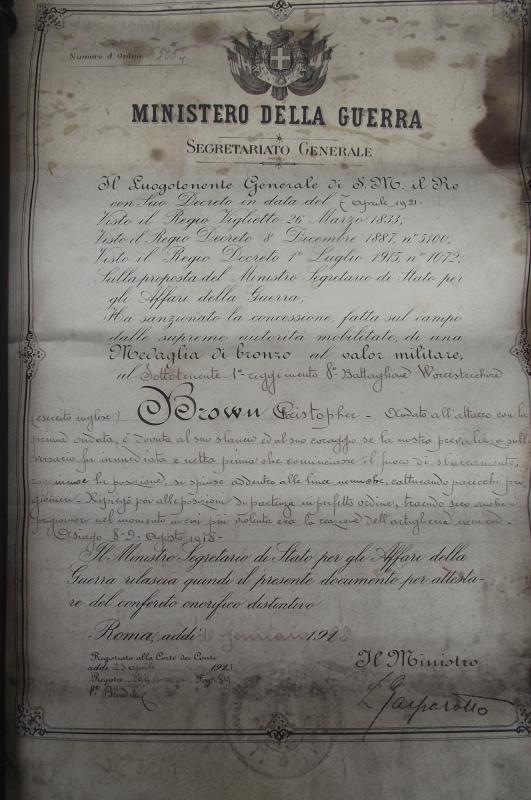 Numero d'Ordine
MINISTERO DELLA GUERRA
SEGRETARIATO GENERALE
Il Luogotenente Generale di S. M. il Re
con Suo Decreto in data del 7 aprile 1921
Visto il Regio Viglietto 26 Marzo 1833;
Visto il Regio Decreto 8 Dicembre 1887, n° 5100;
Visto il Regio Decreto 1° Luglio 1915, n° 1072;
Sulla proposta del Ministro Segretario di Stato per
gli Affari della Guerra;
Ha sanzionato la concessione, fatta sul campo
dalle supreme autorità mobilitate, di una
Medaglia di bronzo al valor militare,
al Sottotenente 1° reggimento 8° Battaglione
(esercito inglese) Brown Cristopher - Andato all'attacco con la
prima ondata, è dovuta al suo slancio ed al suo coraggio se la nostra prevalenza sull'
versario fu immediata e netta prima che cominciasse il fuoco di sbarramento,
la posizione, si spinse addentro alle linee nemiche, catturando parecchi pri
gionieri - Ripiegò poi alle posizioni di partenza in perfetto ordine, traendo seco anche i
prigionieri nel momento in cui più violenta era la reazione dell'artiglieria nemica.
Asiago 8-9 Agosto 1918 -
Il Ministro Segretario di Stato per gli Affari della
Guerra rilascia quindi il presente documento per attesta-
re del conferito onorifico distintivo
Roma, addì 10 Gennaro 1922
Registrato alla Corte dei Conti
addì 23 aprile 1921
Registro Guerra Fog.
Il Ministro
L. Gasparotto